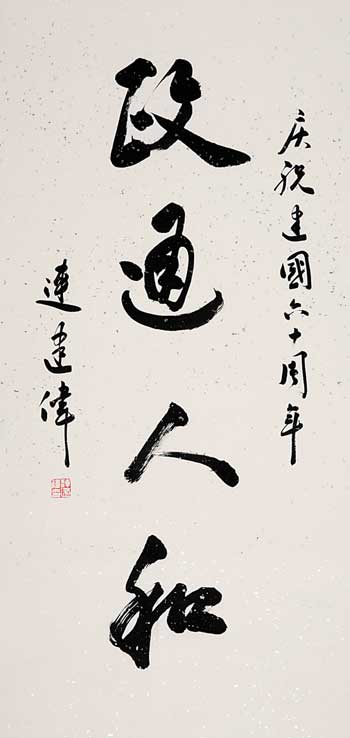 庆祝建國六十周年
政通人和
連建偉